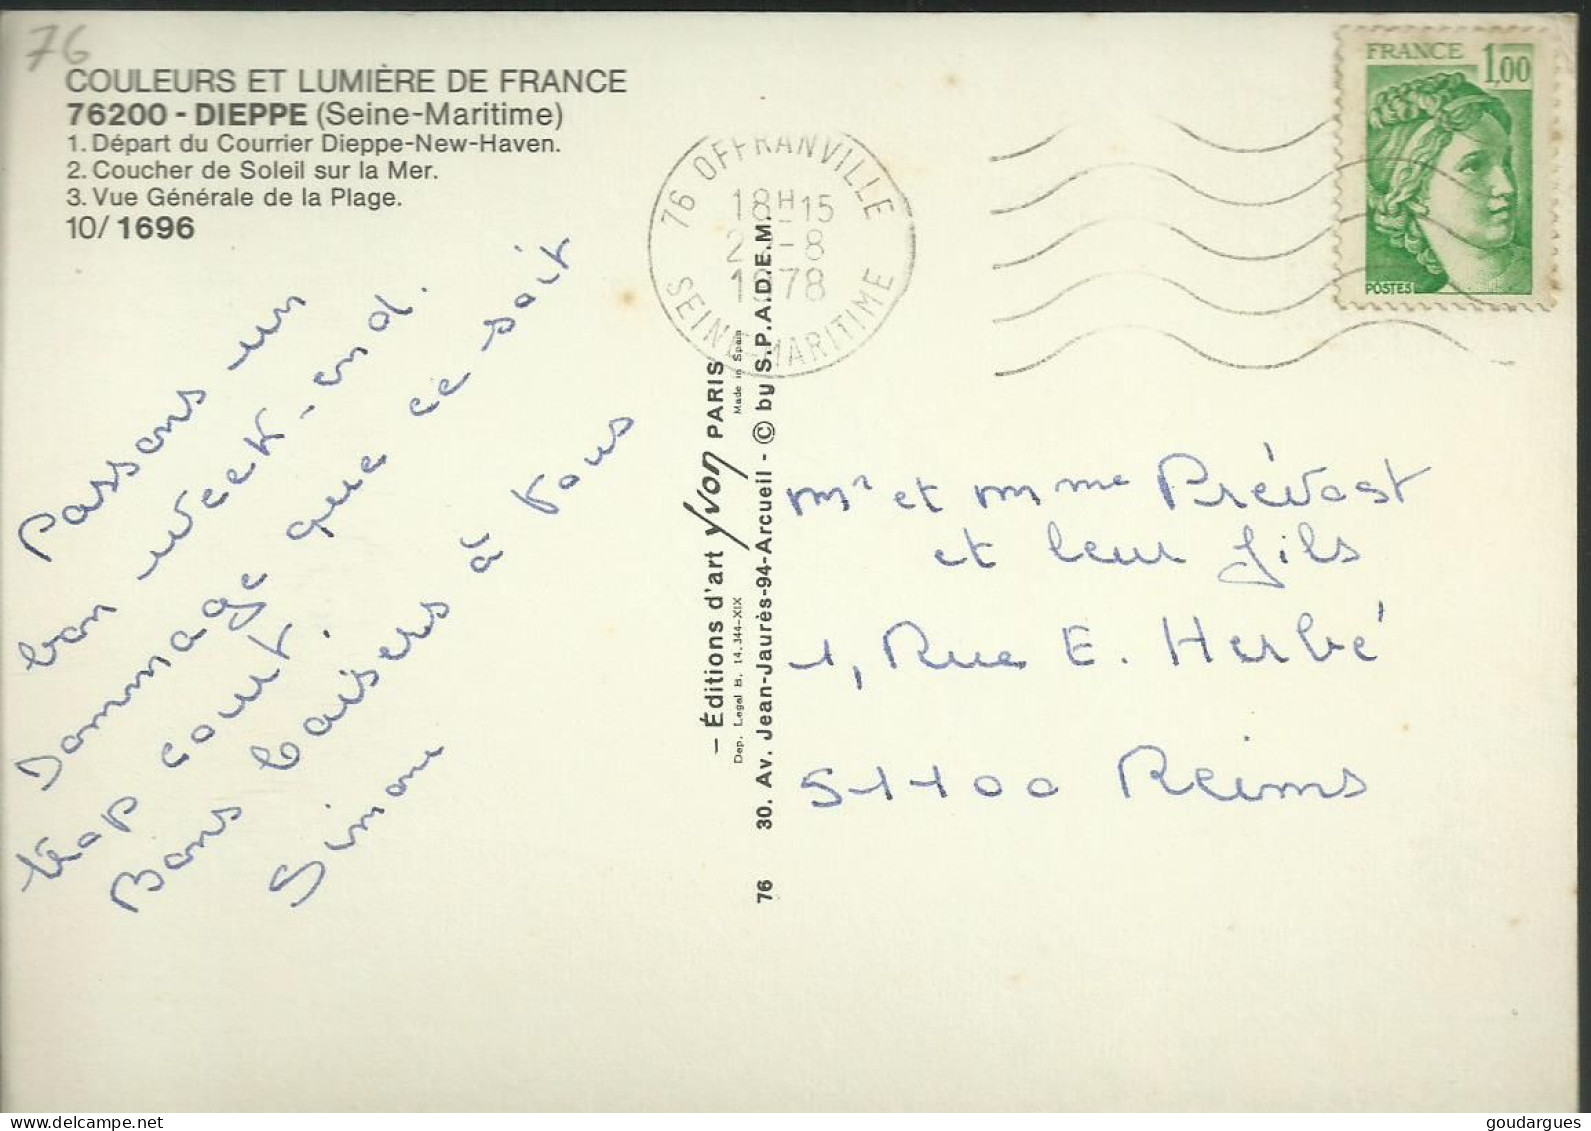 76
COULEURS ET LUMIÈRE DE FRANCE
76200 - DIEPPE (Seine-Maritime)
1. Départ du Courrier Dieppe-New-Haven.
2. Coucher de Soleil sur la Mer.
3. Vue Générale de la Plage.
10/ 1696
Passons un
bon week-end.
Dommage que ce soit
trop court.
Bons baisers à tous
Simone
76 OFFRANVILLE
18H15
2 -8
1978
SEINE-MARITIME
FRANCE
1,00
POSTES
— Éditions d'art yvon PARIS
Made in Spain
Dep. Legal B. 14.344-XIX
76 30. Av. Jean-Jaurès-94-Arcueil - © by S.P.A.D.E.M.
Mr et Mme Prévost
et leur fils
1, Rue E. Herbé
51100 Reims
goudargues